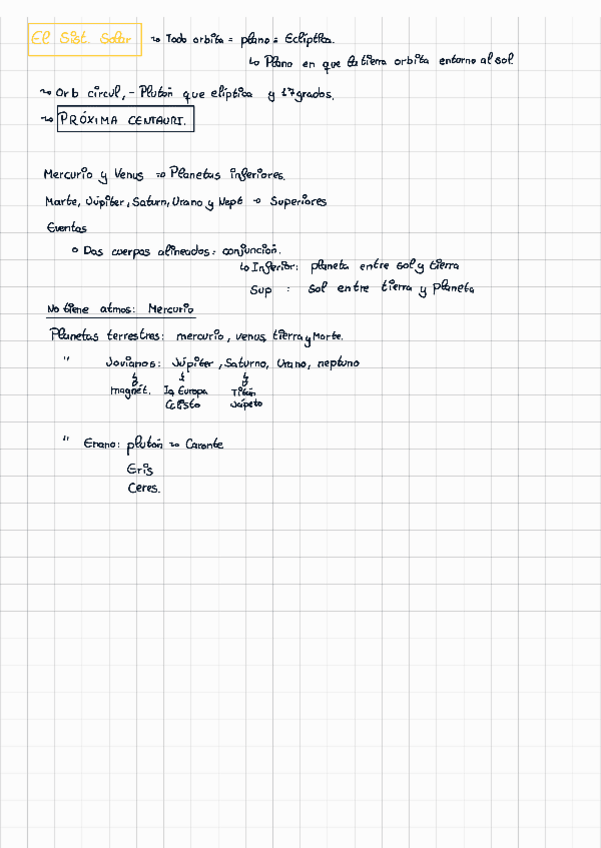 El Sist. Solar ↝ Todo orbita = plano = Eclíptica.
↳ Plano en que la tierra orbita entorno al sol
↝ Orb circul, - Plutón que elíptica y 17 grados.
↝ PRÓXIMA CENTAURI.
Mercurio y Venus ⇝ Planetas inferiores.
Marte, Júpiter, Saturn, Urano y Nept ⇝ Superiores
Eventos
Dos cuerpos alineados: conjunción.
↳ Inferior: planeta entre sol y tierra
Sup : Sol entre tierra y planeta
No tiene atmos: Mercurio
Planetas terrestres: mercurio, venus, tierra y Marte.
" Jovianos: Júpiter, Saturno, Urano, neptuno
magnét. Io, Europa Titán
Calisto Jápeto
" Enano: plutón ↝ Caronte
Eris
Ceres.